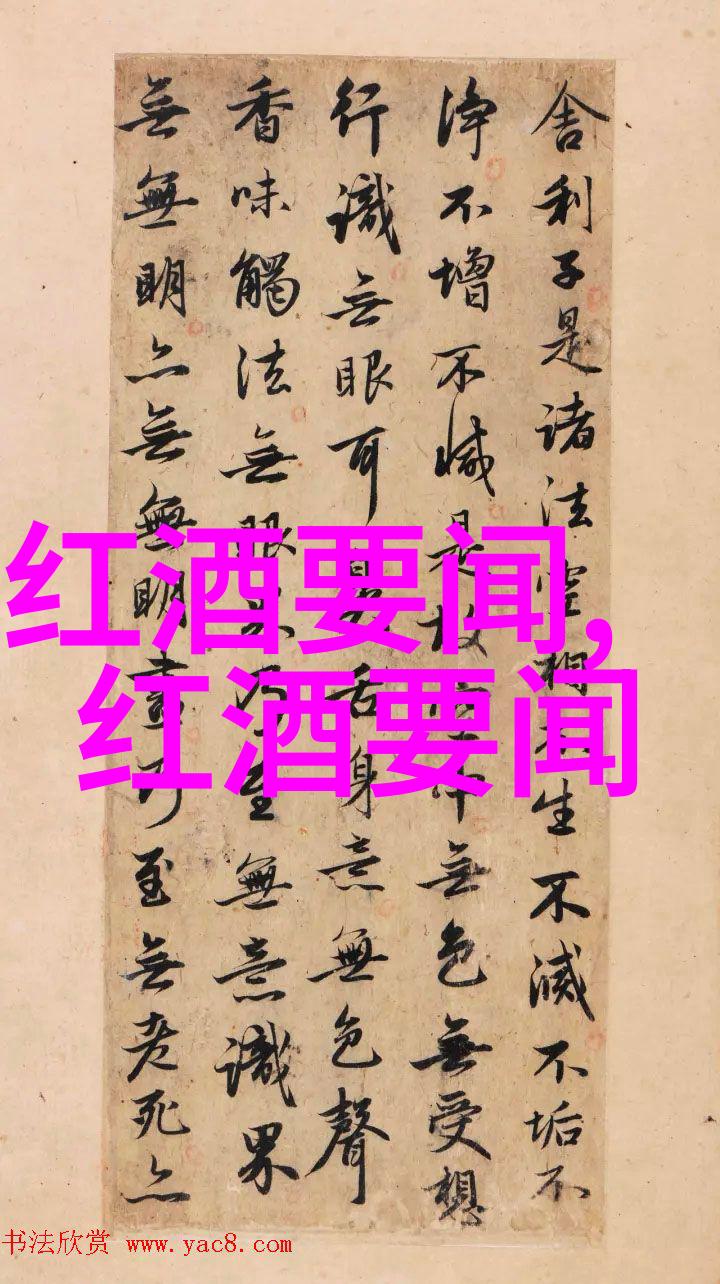 舍利子是諸法空相不生不滅不垢不
淨不增不減是故空中無色無受想
行識無眼耳鼻舌身意無色聲
香味觸法無眼界乃至無意識界
無無明亦無無明盡乃至無老死亦
红酒要闻,
红酒要闻
书法欣赏 www.yac8.com